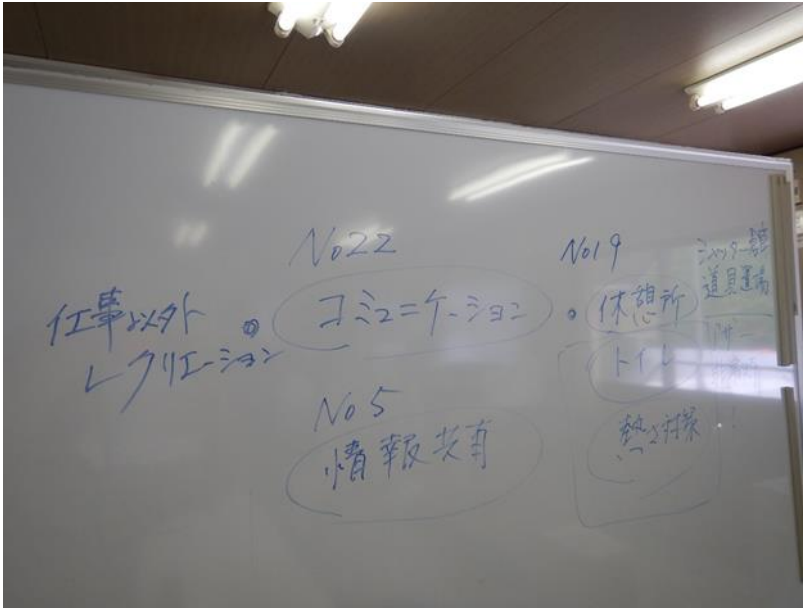 仕事以外
レクリエーション
No22
◎ コミュニケーション
No5
情報共有
No19
・休憩所
トイレ
熱さ対策
道具置場